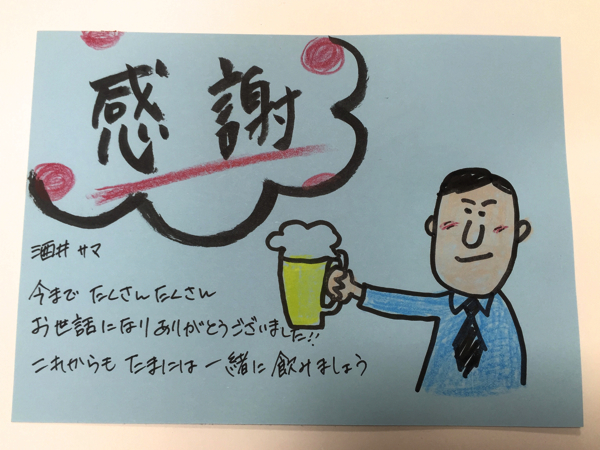 感謝
酒井サマ
今まで たくさんたくさん
お世話になりありがとうございました!!
これからも たまには 一緒に 飲みましょう